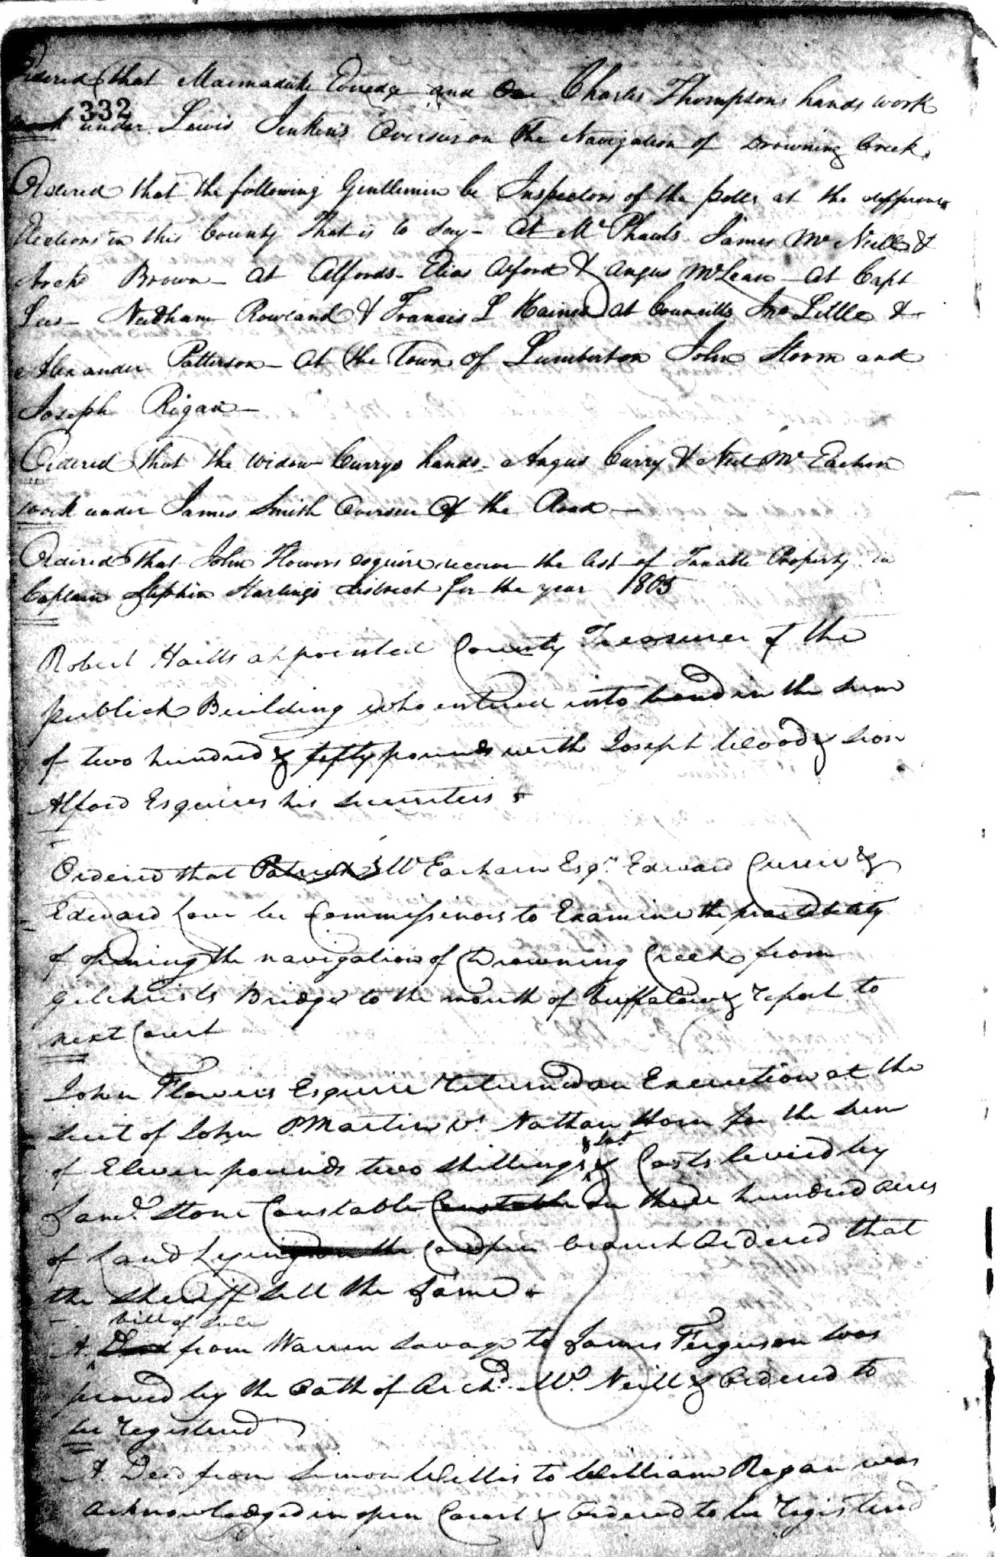 Ordered that Marmaduke and Charles Thompsons hands work
332
under Lewis Jenkins Overseer on the Navigation of Drowning Creek.
Ordered that the following Gentlemen be Inspectors of the polls at the different
Elections in this County That is to say – At Mc Phauls James Mc Neill &
Archd Brown – at Alfords – Elias Alford & Angus McLean – at Capt
Lees – Needham Rowland & Francis L Haines at Councills Jno Little &
Alexander Patterson – at the Town of Lumberton John Storm and
Joseph Rigan –
Ordered that the widow Currys hands – Angus Curry & Neil Mc Eachin
work under James Smith Overseer of the Road –
Ordired that John Flowers esquire receive the list of Taxable Property in
Captain Stephen Harlings district for the year 1805
Robert Haills appointed County Treasurer of the
publick Building who entered into bond in the sum
of two hundred & fifty pounds with Joseph Wood & Sion
Alford Esquires his securities
Ordered that Patrick Mc Eacharn Esqr Edward Currie &
Edward Love be Commissinors to Examine the practibility
of opening the navigation of Drowning Creek from
Gilchrists Bridge to the mouth of Buffalow & report to
next Court
John Flowers Esquire returnd an Execution at the
suit of John P. Martin vs Nathan Horn for the sum
of Eleven pounds two shillings & Int & Costs levied by
Saml. Stone Constable Constable on three hundred acres
of Land Lying on the branch Ordered that
the Sheriff sell the same
bill of sale
A Deed from Warren Savage to James Ferguson was
proved by the Oath of Archd. Mc Neill & Ordered to
be registered
A Deed from Simon Willis to William Regan was
acknowledged in open Court & Ordered to be registered